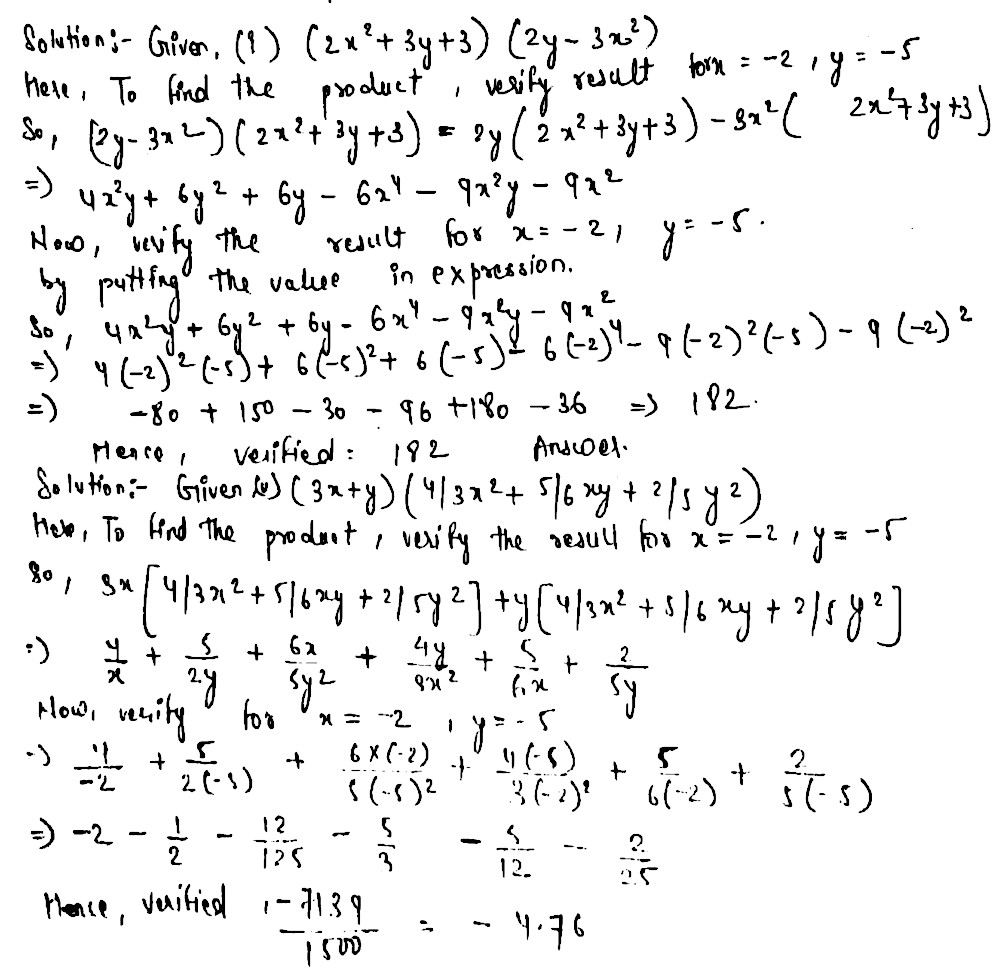 Solution:- Given, (i) (2x²+3y+3) (2y-3x²)
Here, To find the product, verify result for x = -2, y = -5
So, (2y-3x²)(2x²+3y+3) = 2y(2x²+3y+3) - 3x²(2x²+3y+3)
=) 4x²y + 6y² + 6y - 6x⁴ - 9x²y - 9x²
Now, verify the result for x = -2, y = -5.
by putting the value in expression.
So, 4x²y + 6y² + 6y - 6x⁴ - 9x²y - 9x²
=) 4(-2)²(-5) + 6(-5)² + 6(-5) - 6(-2)⁴ - 9(-2)²(-5) - 9(-2)²
=) -80 + 150 - 30 - 96 + 180 - 36 => 182.
Hence, verified : 182 Answer.
Solution:- Given (3x+y)(4/3x² + 5/6xy + 2/5y²)
Here, To find the product, verify the result for x = -2, y = -5
So, 3x[4/3x² + 5/6xy + 2/5y²] + y[4/3x² + 5/6xy + 2/5y²]
=) 4/x + 5/2y + 6x/5y² + 4y/3x² + 5/6x + 2/5y
Now, verify for x = -2, y = -5
=) 4/-2 + 5/2(-5) + 6×(-2)/5(-5)² + 4(-5)/3(-2)² + 5/6(-2) + 2/5(-5)
=) -2 - 1/2 - 12/125 - 5/3 - 5/12 - 2/25
Hence, verified, -7139/1500 = -4.76